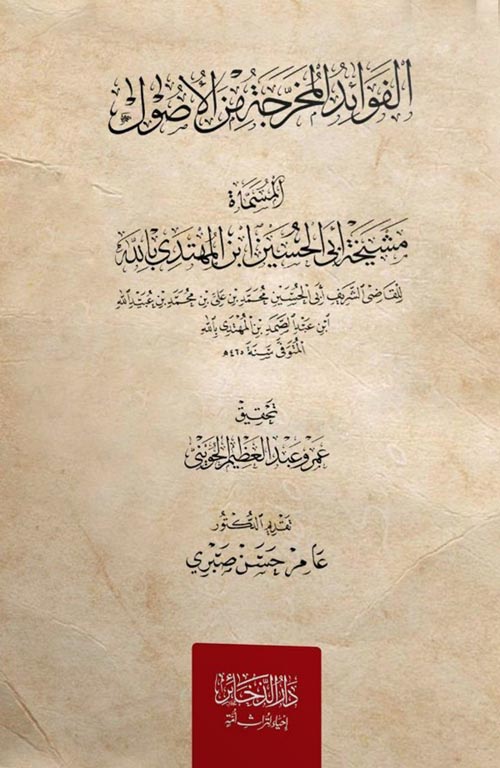 الفَوَائِدُ المُخَرَّجَةُ مِنَ الأُصُولِ
المُسَمَّاة
مَشْيَخَة أبي الحُسَيْن ابن المهْتَدِي بالله
للقَاضِي الشَّرِيفِ أبي الحُسَيْنِ مُحَمَّد بْنِ عَلِيّ بْنِ مُحَمَّد بْنِ عُبَيْدِ الله
ابن عَبْدِ الصَّمَدِ بْنِ المُهْتَدِي بالله
المُتَوَفَّى سَنَة ٤٦٥هـ
تَحْقِيق
عَمْرو عَبْد العَظِيم الحُوَيْنِي
تَقْدِيم الدُّكْتُور
عَامِر حَسَنْ صَبْرِي
دَارُ الذَّخَائِر
إحْيَاءٌ لتُرَاثِ أُمَّةٍ